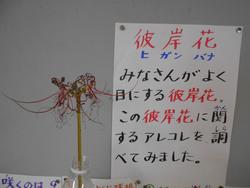 彼岸花
ヒガンバナ
みなさんがよく
目にする彼岸花。
この彼岸花に関
かん
するアレコレを調
しら
べてみました。
咲くのは